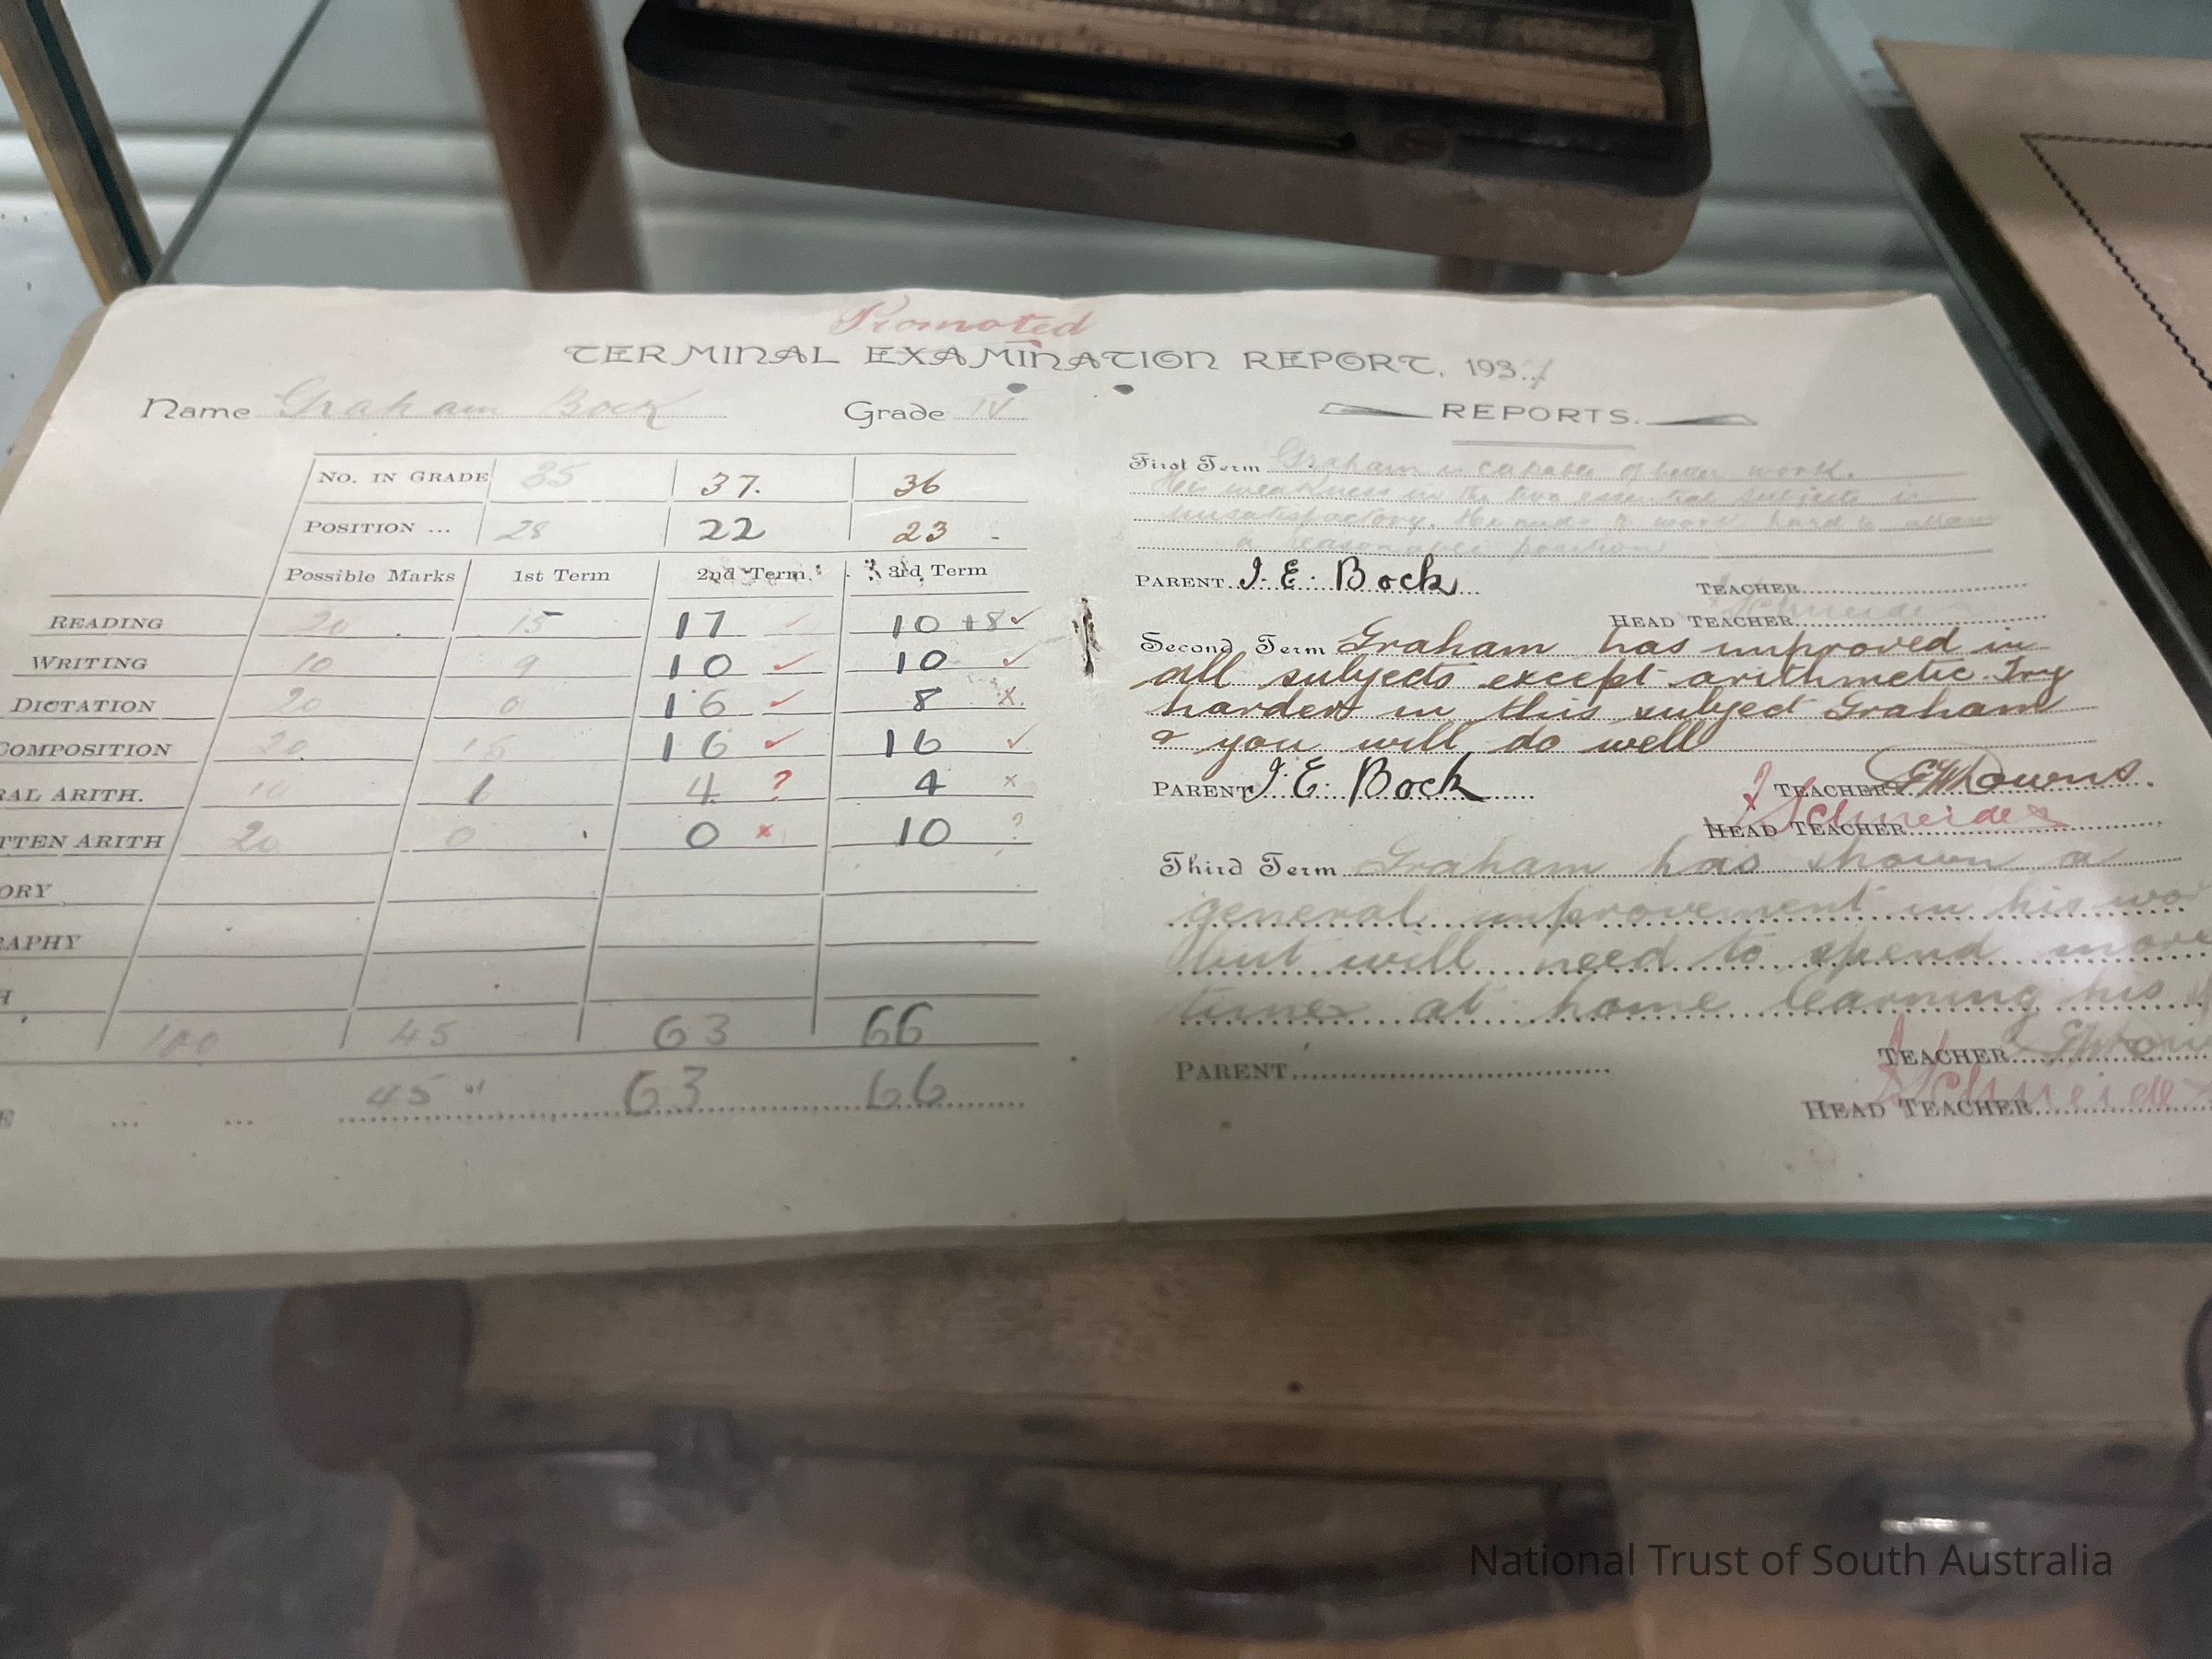 Promoted
TERMINAL EXAMINATION REPORT, 193
Name Graham Bock Grade IV
NO. IN GRADE 35 37. 36
POSITION ... 28 22 23
Possible Marks 1st Term 2nd Term 3rd Term
READING 20 15 17 ✓ 10 +8 ✓
WRITING 10 9 10 ✓ 10 ✓
DICTATION 20 0 16 ✓ 8 x
COMPOSITION 20 15 16 ✓ 16 ✓
RAL ARITH. 10 4 ? 4 x
TTEN ARITH 20 0 0 x 10 ?
ORY
RAPHY
H
100 45 63 66
E ... ... 45 63 66
REPORTS.
First Term Graham is capable of better work.
His weakness in the two essential subjects is
unsatisfactory. He needs to work hard to attain
a reasonable position
PARENT J. E. Bock TEACHER
HEAD TEACHER Schneider
Second Term Graham has improved in
all subjects except arithmetic. Try
harder in this subject Graham
& you will do well
PARENT J. E. Bock TEACHER Downs.
HEAD TEACHER Schneider
Third Term Graham has shown a
general improvement in his wor
but will need to spend more
time at home learning his
PARENT TEACHER
HEAD TEACHER Schneider
National Trust of South Australia